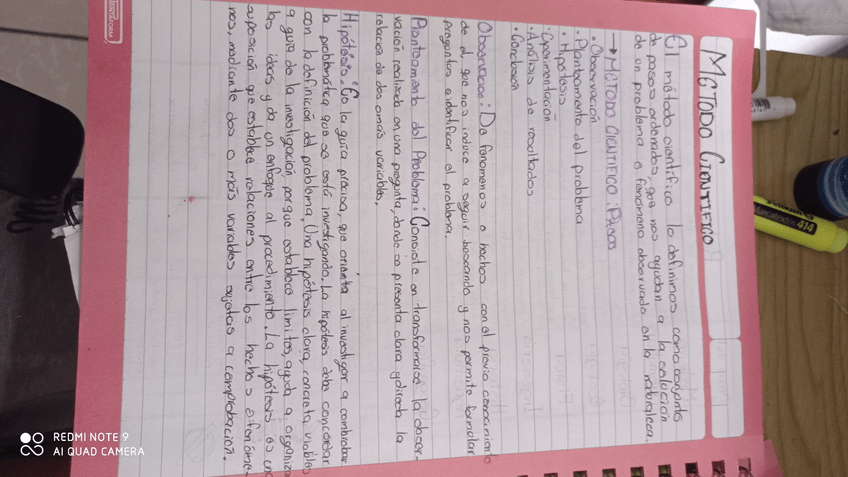 MÉTODO CIENTIFICO
El método cientifico lo definimos como conjuntos
de pasos ordenados, que nos ayudan a la solución
de un problema o fenómeno observado en la naturaleza.
→ METODO CIENTIFICO: PASOS
• Observación
• Planteamiento del problema
• Hipótesis
• Experimentación
• Análisis de resultados
• Conclusión
Observación: De fenomenos o hechos con el previo conocimiento
de el, que nos induce a seguir buscando y nos permite formular
preguntas e identificar el problema.
Planteamiento del Problema: Consiste en transformarse la obser-
vación realizada en una pregunta, donde se presenta clara y directa la
relación de dos o más variables.
Hipótesis: Es la guía precisa, que orienta al investigar a combrobar
la problemática que se está investigando. La hipótesis debe concordar
con la definición del problema. Una hipótesis clara, concreta, viables
a guia de la investigación porque establece limites, ayuda a organizar
las ideas y da un enfoque al procedimiento. La hipótesis es una
suposición que establece relaciones entre los hechos o fenóme-
nos, mediante dos o más variables sujetas a comprobación.
Marcatextos 414
REDMI NOTE 9
AI QUAD CAMERA